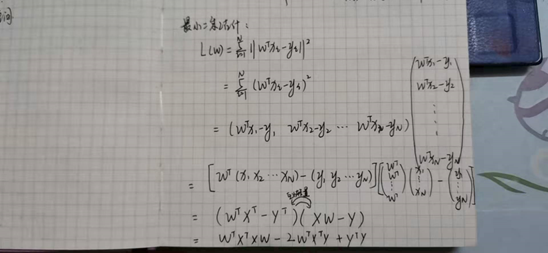 最小二乘估计:
L(W) = Σ_{i=1}^{N} ||W^T x_i - y_i||^2
= Σ_{i=1}^{N} (W^T x_i - y_i)^2
= (W^T x_1 - y_1 W^T x_2 - y_2 ⋯ W^T x_N - y_N) (W^T x_1 - y_1 W^T x_2 - y_2 ⋮ W^T x_N - y_N)
= [W^T (x_1 x_2 ⋯ x_N) - (y_1 y_2 ⋯ y_N)] [(W^T W^T ⋮ W^T) (x_1 ⋮ x_N) - (y_1 ⋮ y_N)]
= (W^T X^T - Y^T) (XW - Y)
= W^T X^T X W - 2 W^T X^T Y + Y^T Y